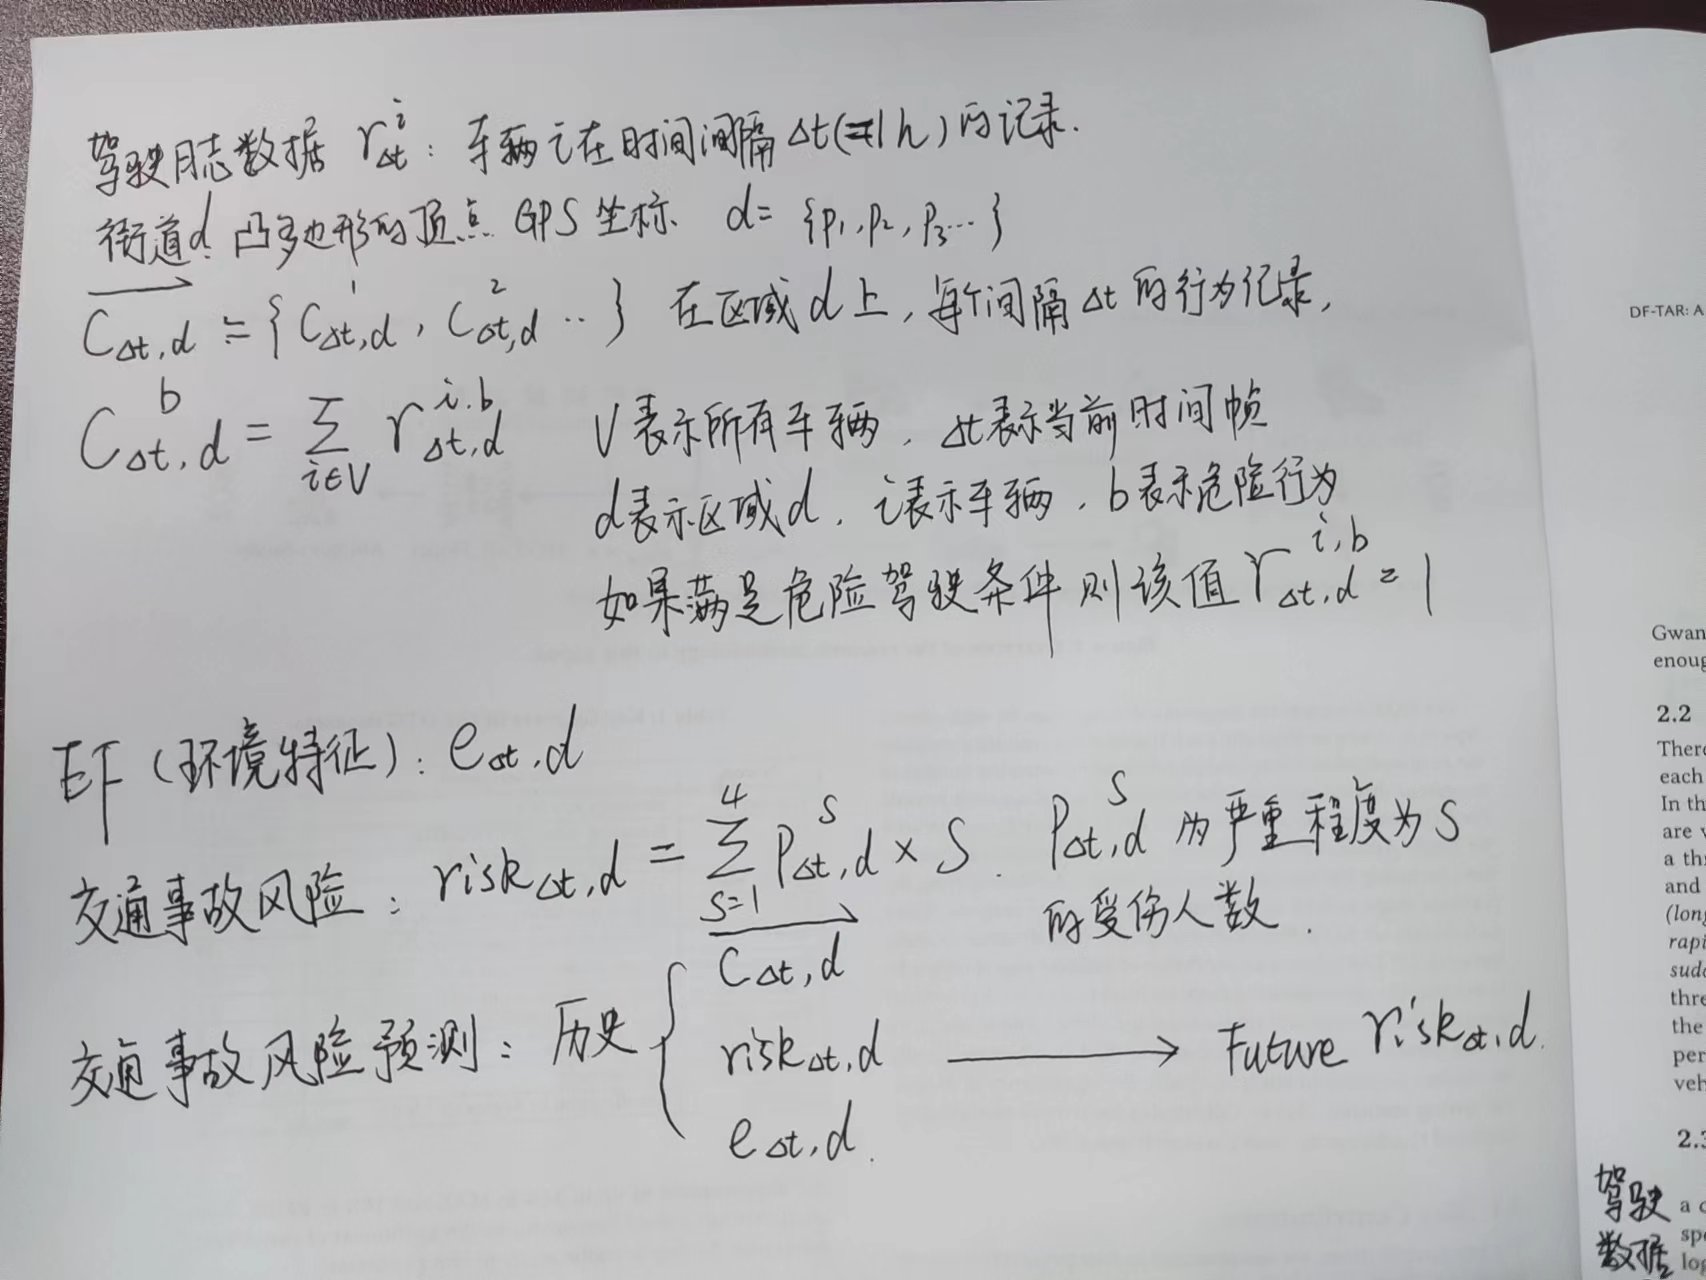 驾驶日志数据 r^i_Δt : 车辆i在时间间隔Δt(=1h)的记录.
街道d. 凸多边形的顶点 GPS坐标. d= {p1, p2, p3...}
C_Δt,d = {C^1_Δt,d, C^2_Δt,d ..} 在区域d上, 每个间隔Δt的行为记录,
C^b_Δt,d = Σ_i∈V r^i.b_Δt,d V表示所有车辆, Δt表示当前时间帧
d表示区域d, i表示车辆, b表示危险行为
如果满足危险驾驶条件则该值 r^i,b_Δt,d = 1
EF (环境特征): e_Δt,d
交通事故风险: risk_Δt,d = Σ^4_S=1 P^S_Δt,d × S. P^S_Δt,d 为严重程度为S
的受伤人数.
交通事故风险预测: 历史 { C_Δt,d
risk_Δt,d ⟶ Future risk_Δt,d.
e_Δt,d.
DF-TAR: A
Gwan
enoug
2.2
There
each
In th
are v
a th
and
(long
rapi
sudd
thre
the
per
veh
2.3
驾驶
数据
a c
spe
log